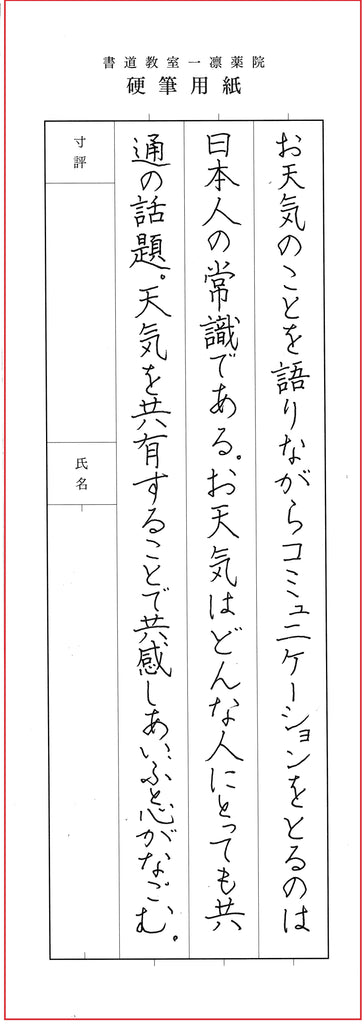 書道教室一凛薬院
硬筆用紙
お天気のことを語りながらコミュニケーションをとるのは
日本人の常識である。お天気はどんな人にとっても共
通の話題。天気を共有することで共感しあい、ふと心がなごむ。
寸評
氏名